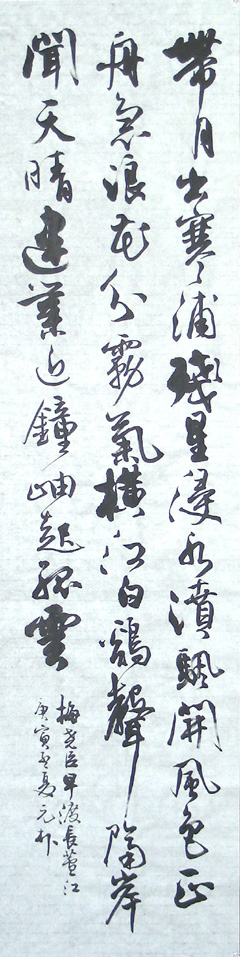 帶月出寒浦殘星浸水濆颿開風色正
舟急浪花分霧氣橫江白鷄聲隔岸
聞天晴建業近鐘岫起孤雲
梅堯臣早渡長蘆江
庚寅孟夏元朴